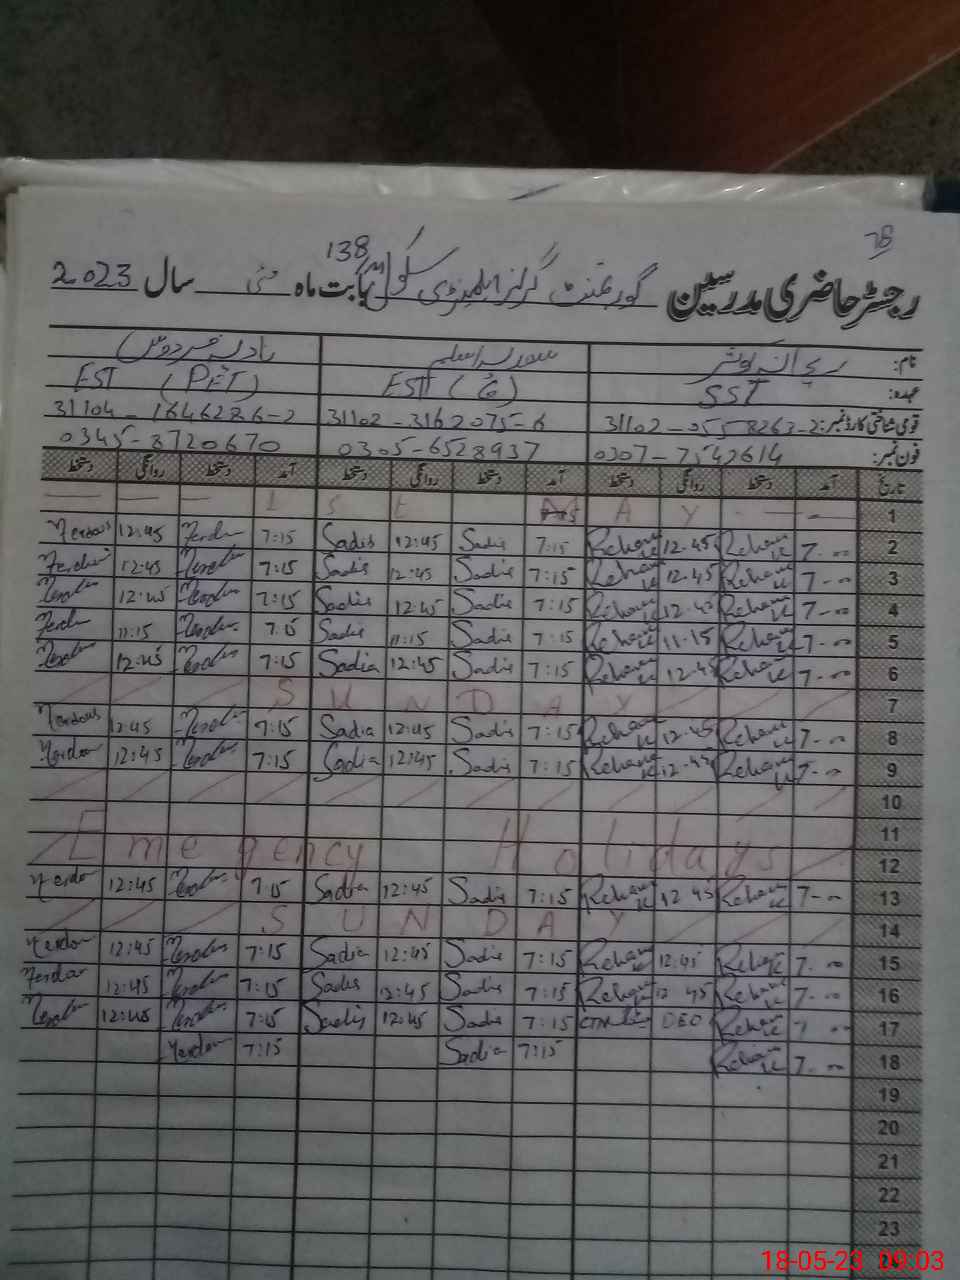 78
رجسٹر حاضری مدرسین گورنمنٹ گرلز ایلیمنٹری سکول 138 بابت ماہ مئی سال 2023
نام: ریحانہ کوثر سعدیہ اسلم نادیہ فردوس
عہدہ: SST EST (PET)
قومی شناختی کارڈ نمبر: 31102-0558263-2 31102-3162075-6 31104-1646286-2
فون نمبر: 0307-7542614 0305-6528937 0345-8720670
تاریخ آمد دستخط روانگی دستخط آمد دستخط روانگی دستخط آمد دستخط روانگی دستخط
1st MAY 1
Ferdous 12:45 7:15 Sadia 12:45 Sadia 7:15 Rehana K 12.45 Rehana K 7-00 2
12:45 7:15 Sadia 12:45 Sadia 7:15 Rehana K 12.45 Rehana K 7-00 3
12:45 7:15 Sadia 12:45 Sadia 7:15 Rehana K 12.45 Rehana K 7-00 4
11:15 7:15 Sadia 11:15 Sadia 7:15 Rehana K 11.15 Rehana K 7-00 5
12:45 7:15 Sadia 12:45 Sadia 7:15 Rehana K 12.45 Rehana K 7-00 6
SUNDAY 7
Ferdous 12:45 7:15 Sadia 12:45 Sadia 7:15 Rehana K 12.45 Rehana K 7-00 8
12:45 7:15 Sadia 12:45 Sadia 7:15 Rehana K 12.45 Rehana K 7-00 9
10
11
Emegency Holidays 12
12:45 7:15 Sadia 12:45 Sadia 7:15 Rehana K 12 45 Rehana K 7-00 13
SUNDAY 14
12:45 7:15 Sadia 12:45 Sadia 7:15 Rehana K 12:45 Rehana K 7-00 15
12:45 7:15 Sadia 12:45 Sadia 7:15 Rehana K 12 45 Rehana K 7-00 16
12:45 7:15 Sadia 12:45 Sadia 7:15 DEO Rehana K 7-00 17
7:15 Sadia 7:15 Rehana K 7-00 18
19
20
21
22
23
18-05-23 09:03